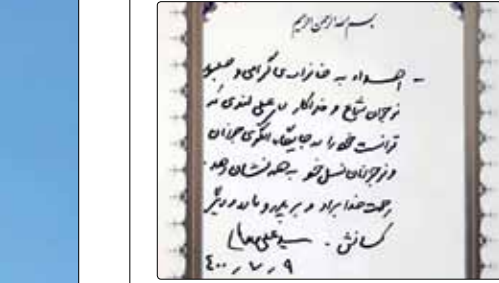 بسم الله الرحمن الرحیم
- اهداء به خانواده‌ی گرامی و صبور
نوجوان شجاع و فداکار علی لندی که
توانست خود را در جایگاه الگوی جوانان
و نوجوانان نسل خود به همه نشان دهد.
رحمت خدا بر او و بر پدر و مادر و دیگر
کسانش. سیدعلی خامنه‌ای
۴۰۰٫۷٫۹